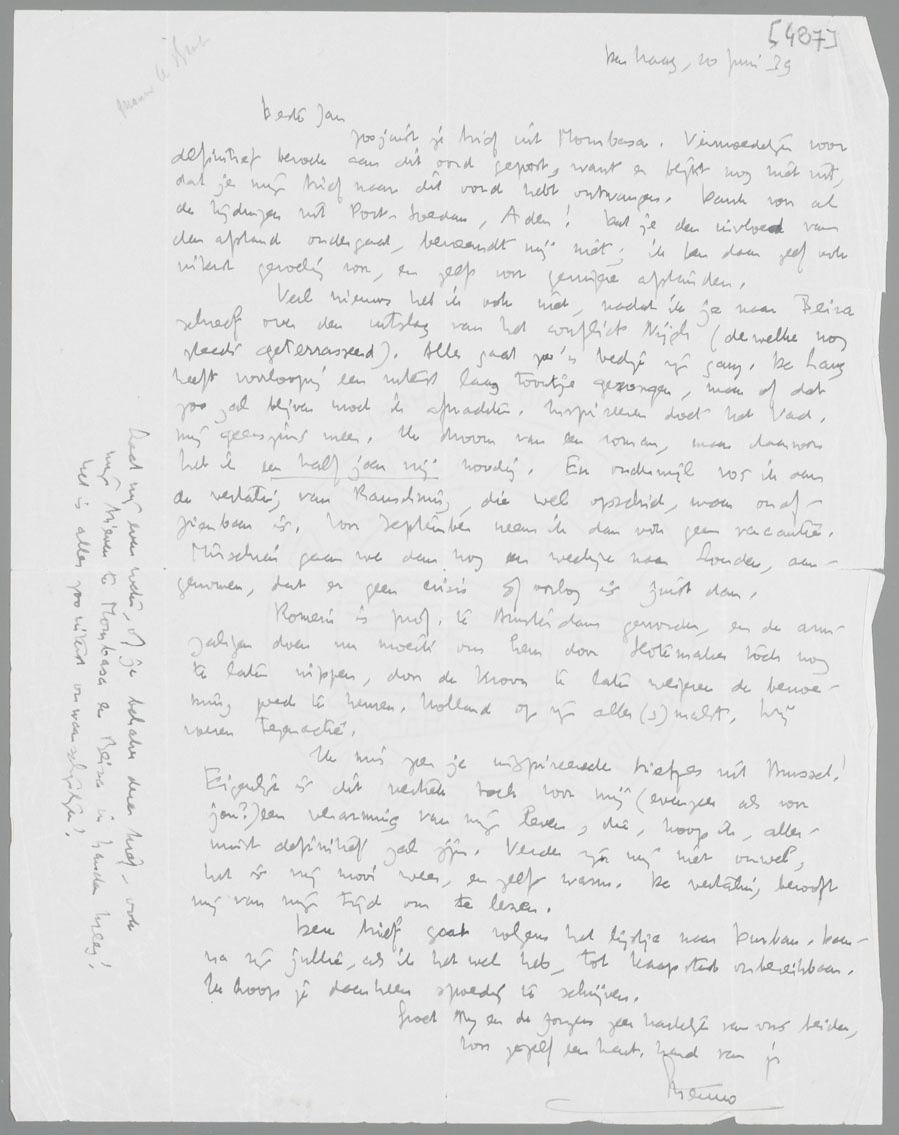 [487]
Den Haag, 20 Juni 39
Beste Jan
Zoojuist je brief uit Mombasa. Vermoedelijk voor
definitief bericht aan dit oord gepost, want er blijkt nog niet uit,
dat je mijn brief naar dit oord hebt ontvangen. Dank voor al
de tijdingen uit Port-Soedan, Aden! Dat je den invloed van
den afstand ondergaat, bevreemdt mij niet; ik ben daar zelf ook
uiterst gevoelig voor, en zelfs voor geringe afstanden.
Veel nieuws heb ik ook niet, nadat ik je naar Beira
schreef over den uitslag van het conflict Nijgh (dewelke nog
steeds geterrasseerd). Alles gaat zoo'n beetje zijn gang. De Lang
heeft voorloopig een uiterst laag toontje gezongen, maar of dat
zoo zal blijven moet ik afwachten. Inspireeren doet het Vad.
mij geenszins meer. Ik droom van een roman, maar daarvoor
heb ik een half jaar vrij noodig. En onderwijl vos ik aan
de vertaling van Rauschning, die wel opschiet, maar onaf-
zienbaar is. Voor September neem ik dan ook geen vacantie.
Misschien gaan we dan nog een weekje naar Londen, aan-
genomen, dat er geen crisis of oorlog is juist dan.
Romein is prof. te Amsterdam geworden, en de
doen nu moeite om hem door toch nog
te laten wippen, door de Kroon te laten weigeren de benoe-
ming goed te keuren. Holland op zijn aller(s)malst. Wij
voeren tegenactie.
Ik mis zeer je inspireerende briefjes uit Brussel!
Eigenlijk is dit vertrek toch voor mij (evenzeer als voor
jou?) een verarming van mijn leven, die, hoop ik, aller-
minst definitief zal zijn. Verder zijn wij niet onwel,
het is mooi weer, en zelfs warm. De vertaling berooft
mij van mijn tijd om te lezen.
Deze brief gaat volgens het lijstje naar Durban. Daar-
na zijn jullie, als ik het wel heb, tot Kaapstad onbereikbaar.
Ik hoop je daarheen spoedig te schrijven.
Groet en de jongens zeer hartelijk van ons beiden,
voor jezelf een hart. hand van je
Menno
Laat mij even weten, of je behalve dezen brief, ook
mijn brieven te Mombasa en Beira in handen kreeg!
het is alles zoo uiterst onwaarschijnlijk!